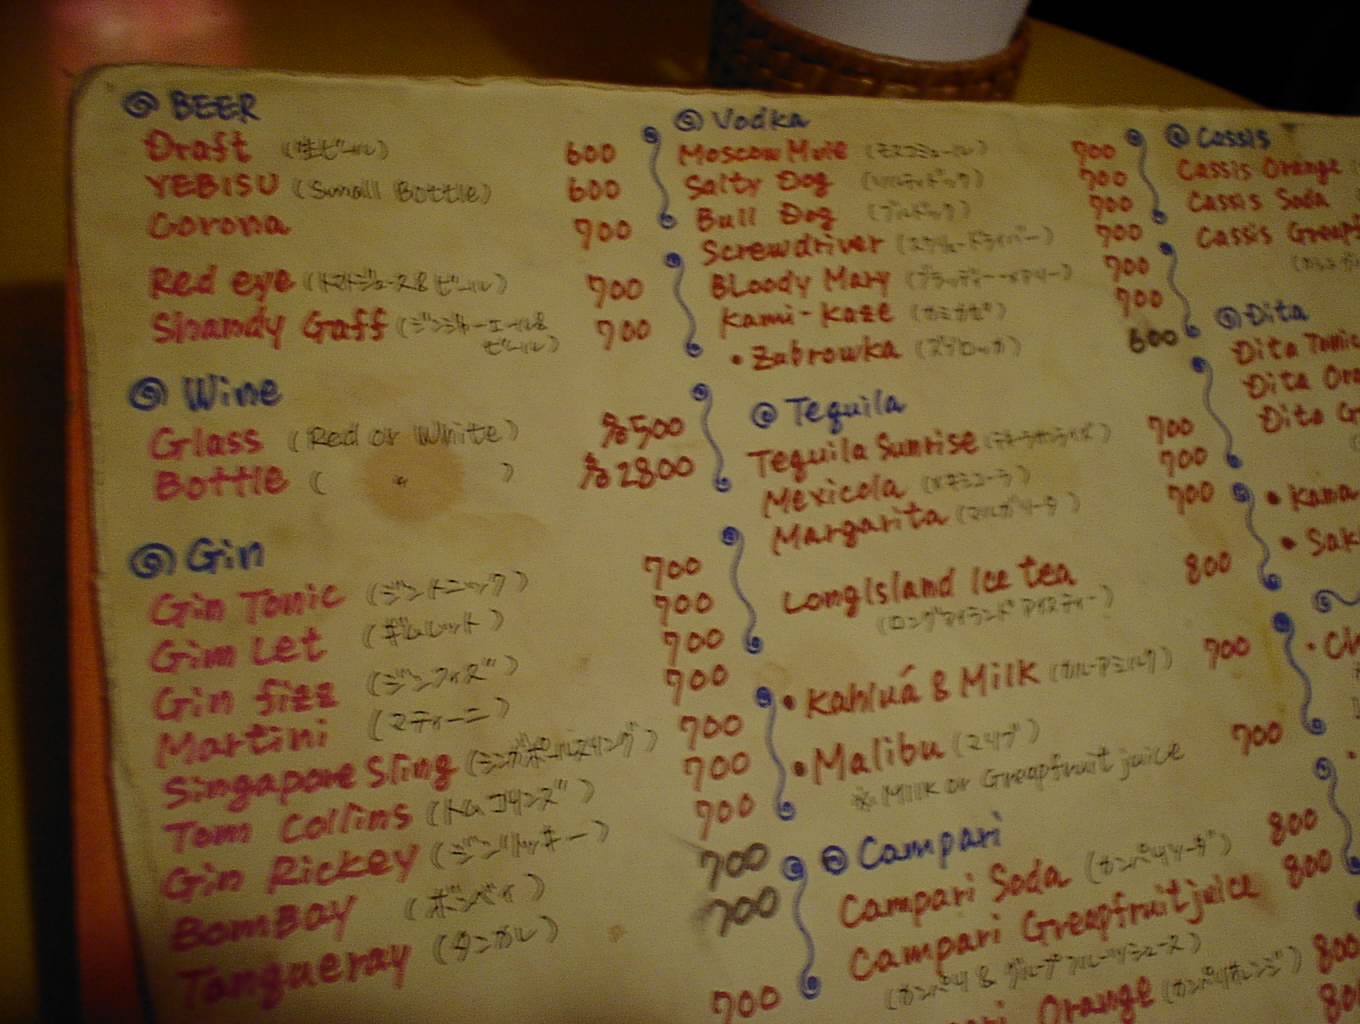 BEER
Draft (生ビール) 600
YEBISU (Small Bottle) 600
Corona 700
Red eye (トマトジュース&ビール) 700
Shandy Gaff (ジンジャーエール&
ビール) 700
Wine
Glass (Red or White) 500
Bottle ( 〃 ) 2800
Gin
Gin Tonic (ジントニック) 700
Gim Let (ギムレット) 700
Gin fizz (ジンフィズ) 700
Martini (マティーニ) 700
Singapore Sling (シンガポールスリング) 700
Tom Collins (トムコリンズ) 700
Gin Rickey (ジンリッキー) 700
BomBay (ボンベイ) 700
Tangueray (タンカレ) 700
700
Vodka
Moscow Mule (モスコミュール) 700
Salty Dog (ソルティドッグ) 700
Bull Dog (ブルドッグ) 700
Screwdriver (スクリュードライバー) 700
Bloody Mary (ブラッディーメアリー) 700
Kami-Kaze (カミカゼ) 700
・Zubrowka (ズブロッカ) 600
Tequila
Tequila Sunrise (テキーラサンライズ) 700
Mexicola (メキシコーラ) 700
Margarita (マルガリータ) 700
LongIsland Ice tea 800
(ロングアイランド アイスティー)
・Kahluá & Milk (カルーアミルク) 700
・Malibu (マリブ) 700
※ Milk or Greapfruit juice
Campari
Campari Soda (カンパリソーダ) 800
Campari Greapfruit juice 800
(カンパリ & グループフルーツジュース)
Orange (カンパリオレンジ) 800
Cassis
Cassis Orange
Cassis Soda
Cassis
Dita
Dita Tonic
Dita
Dita